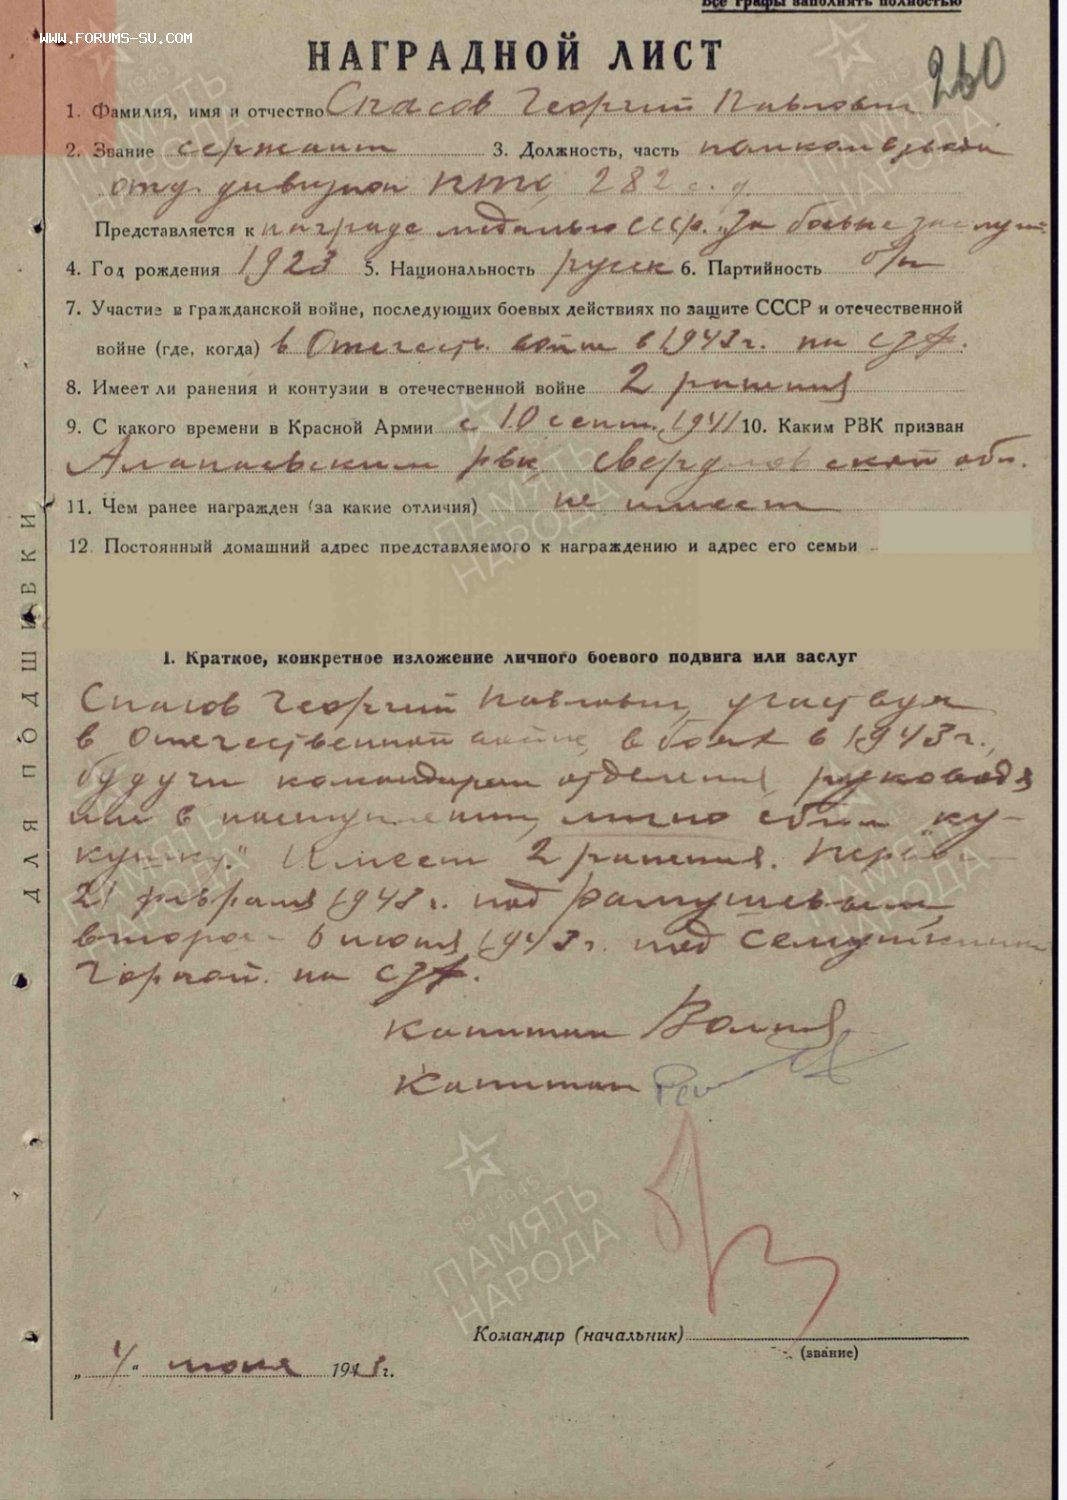 Все графы заполнять полностью
WWW.FORUMS-SU.COM
НАГРАДНОЙ ЛИСТ
260
1. Фамилия, имя и отчество Спасов Георгий Павлович
2. Звание сержант 3. Должность, часть помкомвзвода
отд. дивизион ПТО, 282 с. д.
Представляется к награде медалью СССР. „За боевые заслуги"
4. Год рождения 1923 5. Национальность русск 6. Партийность б/п
7. Участие в гражданской войне, последующих боевых действиях по защите СССР и отечественной
войне (где, когда) в Отечеств. войне в 1943 г. на СЗФ.
8. Имеет ли ранения и контузии в отечественной войне 2 ранения
9. С какого времени в Красной Армии с 10 сент. 1941 10. Каким РВК призван
Алапаевским рвк, Свердловской обл.
11. Чем ранее награжден (за какие отличия) не имеет
12. Постоянный домашний адрес представляемого к награждению и адрес его семьи
I. Краткое, конкретное изложение личного боевого подвига или заслуг
Спасов Георгий Павлович, участвуя
в Отечественной войне, в боях в 1943 г.,
будучи командиром отделения, руководя
им в наступлении, лично сбил „ку-
кушку." Имеет 2 ранения. Первое -
21 февраля 1943 г. под Рамушевым,
второе - 6 июня 1943 г. под
горкой. на СЗФ.
капитан
капитан
Командир (начальник)
(звание)
„ " июня 1943 г.
ДЛЯ ПОДШИВКИ
1941-1945
ПАМЯТЬ
НАРОДА